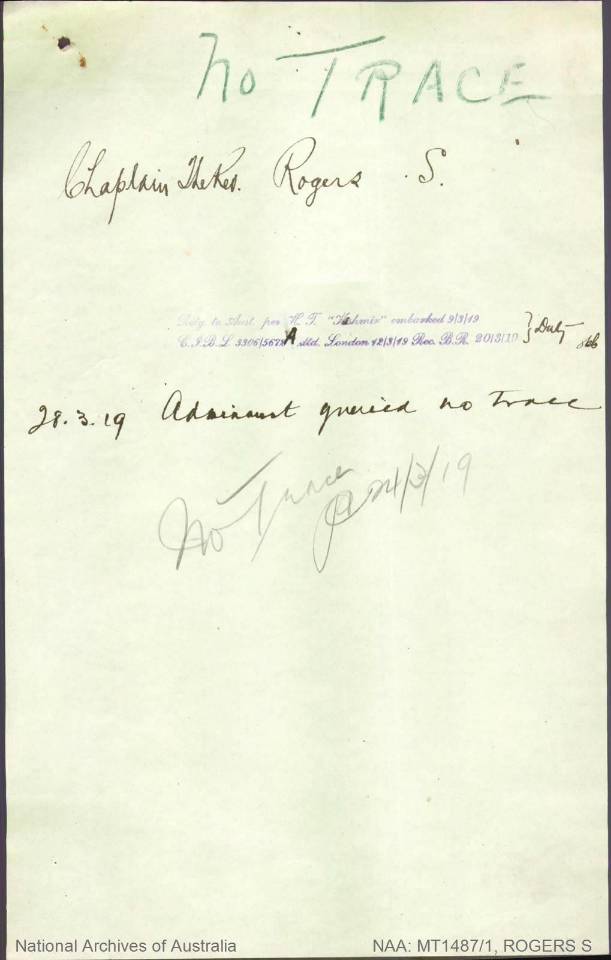 No TRACE
Chaplain The Rev. Rogers S.
Retg. to Aust. per H. T. "Kashmir" embarked 9/3/19
C.I.B.L 3306/5678 A dtd. London 12/3/19 Rec. B.R. 20/3/19 } Duty
28.3.19 Adminaust queried no trace
No Trace
24/3/19
National Archives of Australia
NAA: MT1487/1, ROGERS S